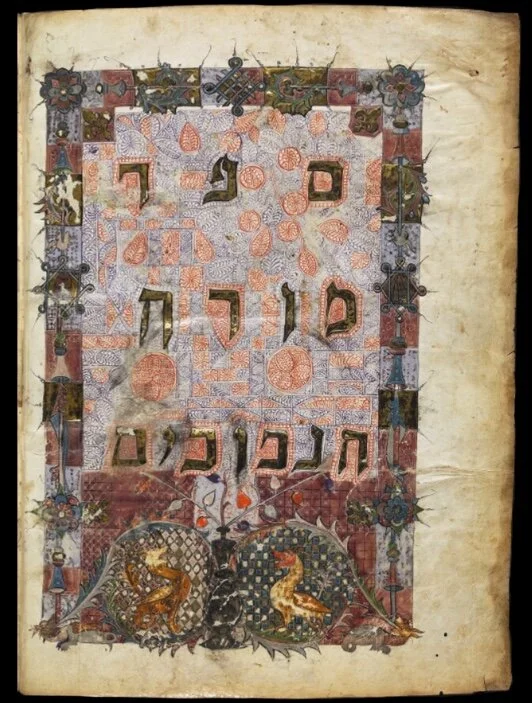 ספר
מורה
הנבוכים